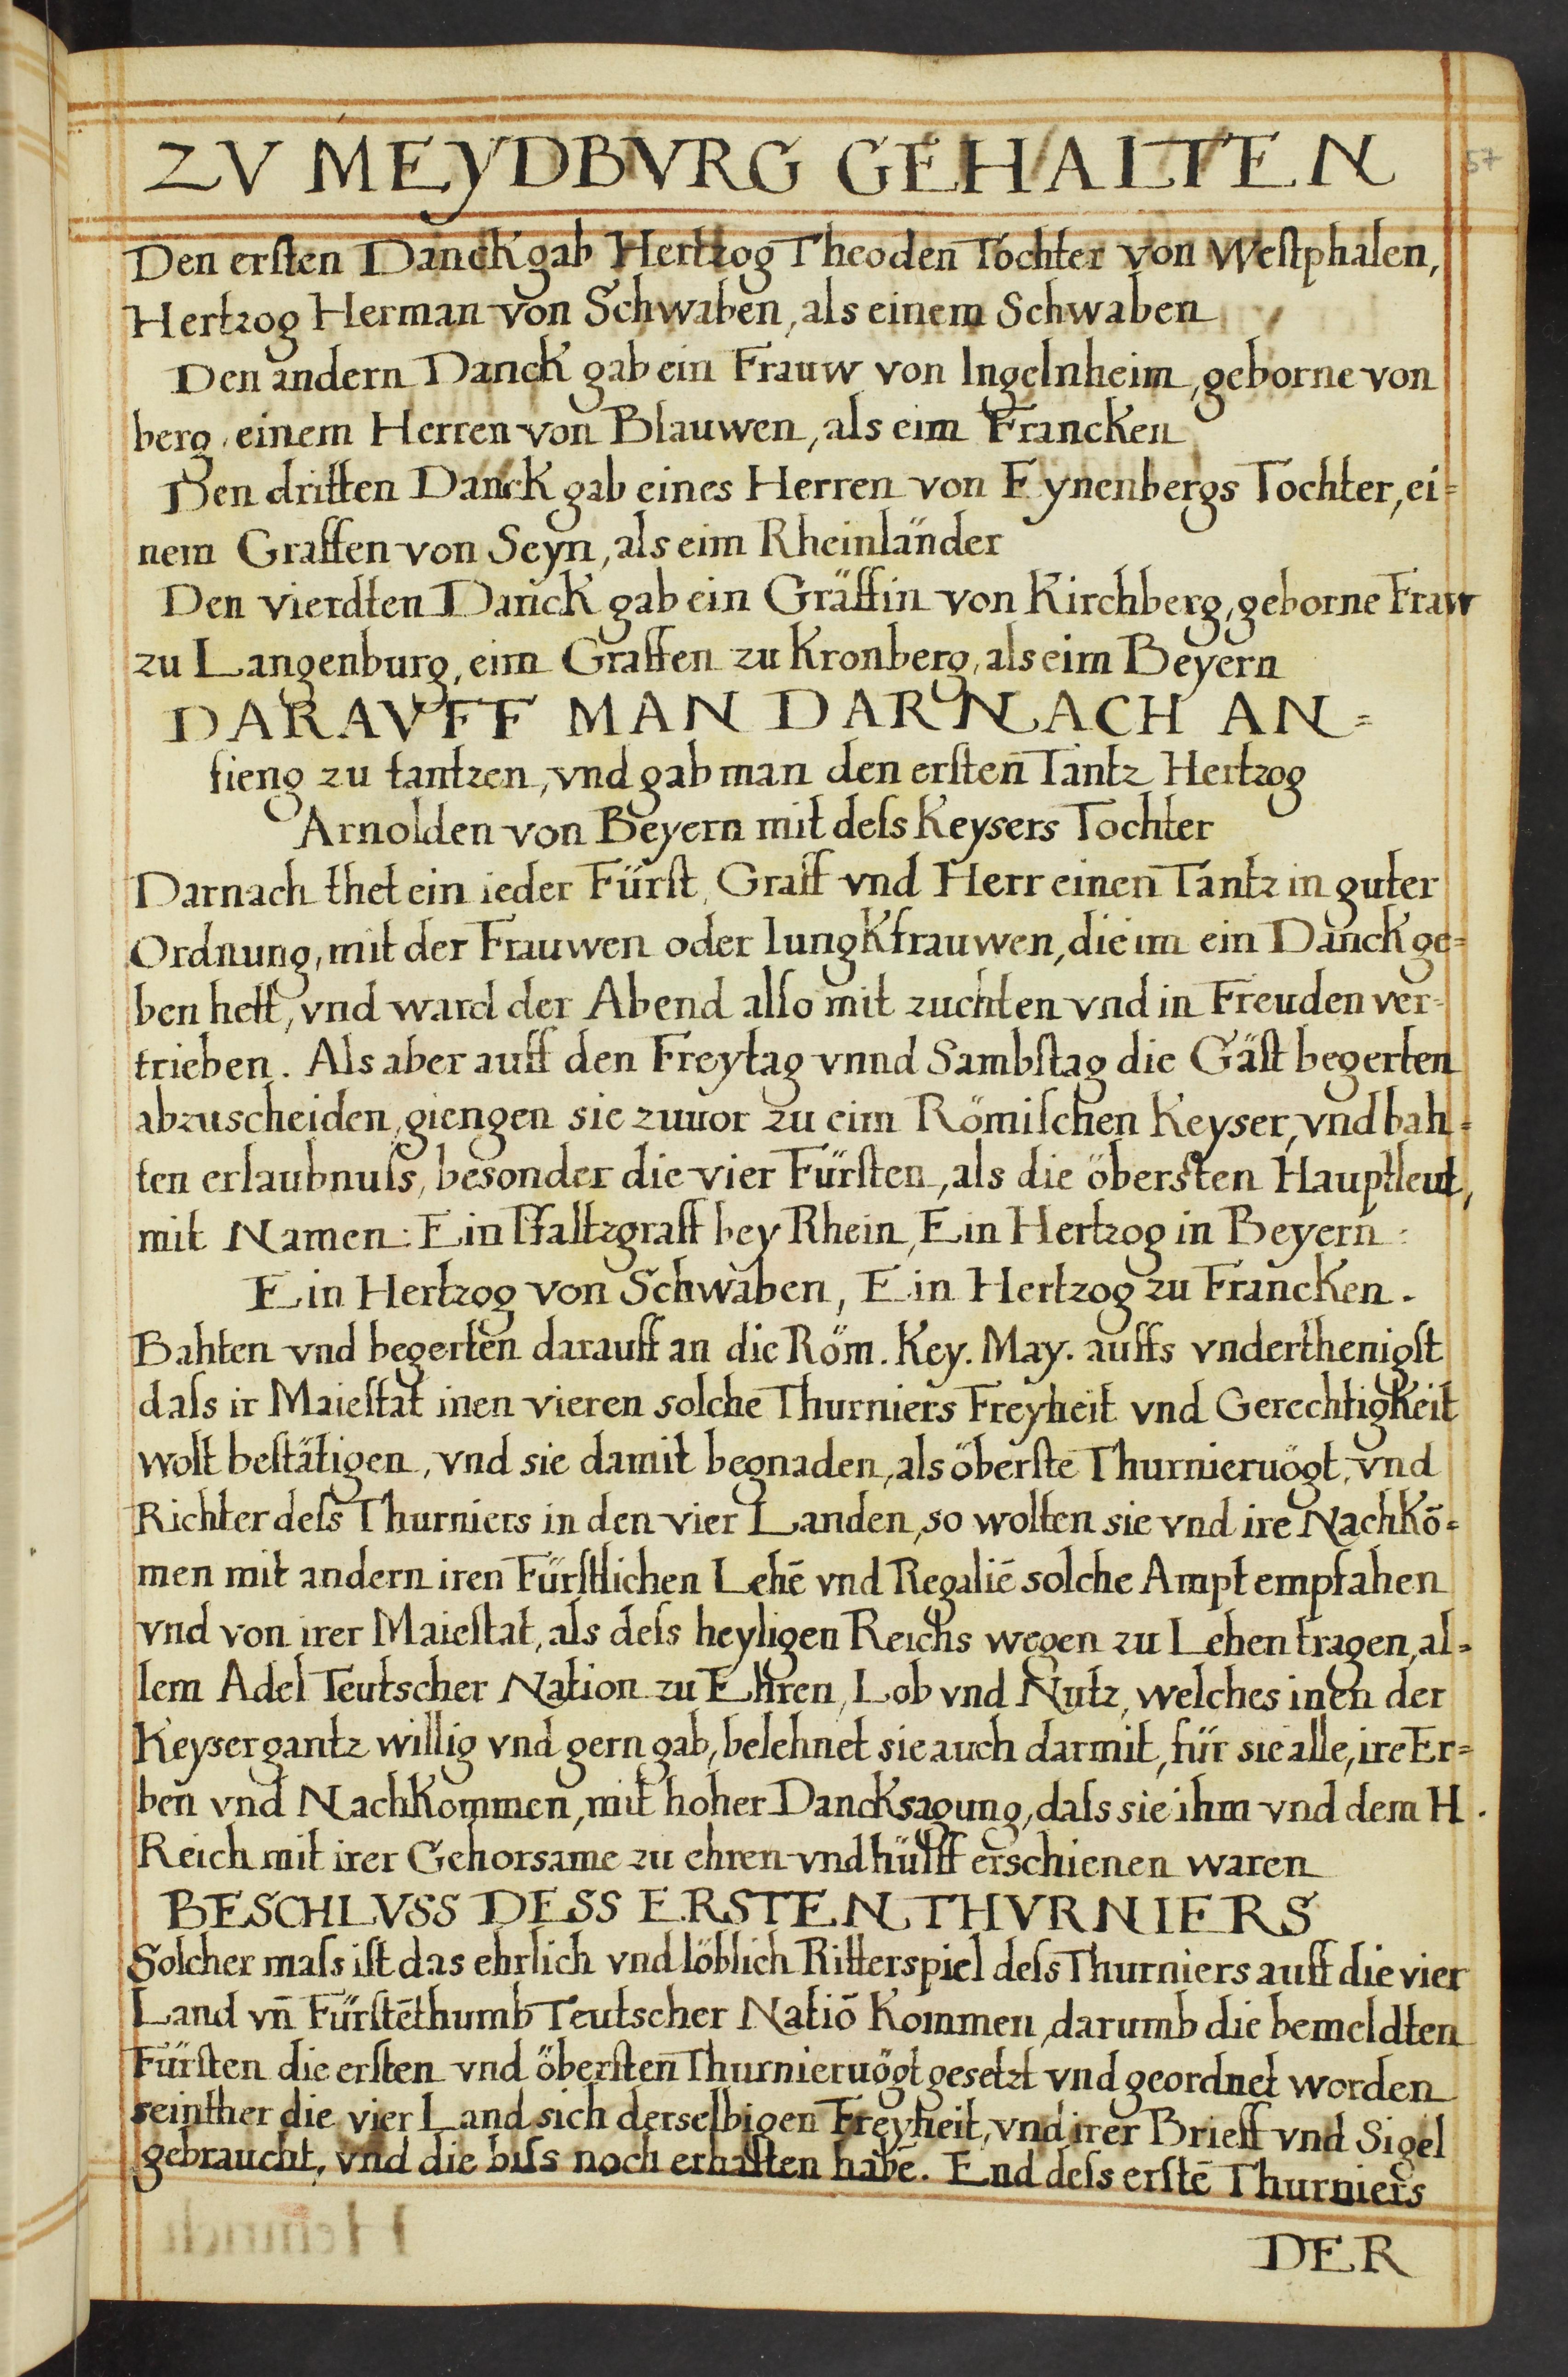 ZV MEYDBVRG GEHALTEN
57
Den erſten Danck gab Hertzog Theoden Tochter von Weſtphalen,
Hertzog Herman von Schwaben, als einem Schwaben
Den andern Danck gab ein Frauw von Ingelnheim, geborne von
berg, einem Herren von Blauwen, als eim Francken
Den dritten Danck gab eines Herren von Eynenbergs Tochter, ei=
nem Graffen von Seyn, als eim Rheinländer
Den vierdten Danck gab ein Gräffin von Kirchberg, geborne Fraw
zu Langenburg, eim Graffen zu Kronberg, als eim Beyern
DARAVFF MAN DARNACH AN=
fieng zu tantzen, vnd gab man den erſten Tantz Hertzog
Arnolden von Beyern mit deſs Keysers Tochter
Darnach thet ein ieder Fürſt, Graff vnd Herr einen Tantz in guter
Ordnung, mit der Frauwen oder Iungkfrauwen, die im ein Danck ge=
ben hett, vnd ward der Abend alſo mit zuchten vnd in Freuden ver=
trieben. Als aber auff den Freytag vnnd Sambſtag die Gäſt begerten
abzuscheiden, giengen sie zuuor zu eim Römiſchen Keyser, vnd bah=
ten erlaubnuſs, besonder die vier Fürſten, als die öberſten Hauptleut,
mit Namen: Ein Pfaltzgraff bey Rhein, Ein Hertzog in Beyern:
Ein Hertzog von Schwaben, Ein Hertzog zu Francken.
Bahten vnd begerten darauff an die Röm. Key. May. auffs vnderthenigſt
daſs ir Maieſtat inen vieren solche Thurniers Freyheit vnd Gerechtigkeit
wolt beſtätigen, vnd sie damit begnaden, als öberſte Thurnieruögt, vnd
Richter deſs Thurniers in den vier Landen, so wolten sie vnd ire Nachkō=
men mit andern iren Fürſtlichen Lehē vnd Regaliē solche Ampt empfahen
vnd von irer Maieſtat, als deſs heyligen Reichs wegen zu Lehen tragen, al=
lem Adel Teutscher Nation zu Ehren, Lob vnd Nutz, welches inen der
Keyser gantz willig vnd gern gab, belehnet sie auch darmit, für sie alle, ire Er=
ben vnd Nachkommen, mit hoher Dancksagung, daſs sie ihm vnd dem H.
Reich mit irer Gehorsame zu ehren vnd hülff erschienen waren
BESCHLVSS DESS ERSTEN THVRNIERS
Solcher maſs iſt das ehrlich vnd löblich Ritterspiel deſs Thurniers auff die vier
Land vn̄ Fürſtēthumb Teutscher Natiō kommen, darumb die bemeldten
Fürſten die erſten vnd öberſten Thurnieruögt gesetzt vnd geordnet worden
seinther die vier Land sich derselbigen Freyheit, vnd irer Brieff vnd Sigel
gebraucht, vnd die biſs noch erhalten habē. End deſs erſtē Thurniers
DER